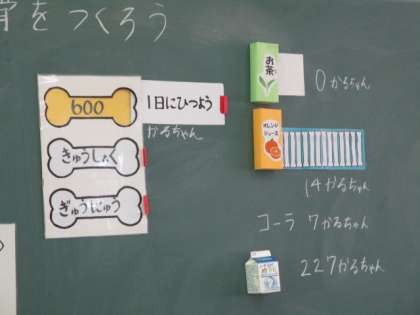 骨をつくろう
600
1日にひつよう
かるちゃん
きゅうしょく
ぎゅうにゅう
お茶
0かるちゃん
オレンジ
ジュース
14かるちゃん
コーラ 7かるちゃん
227かるちゃん